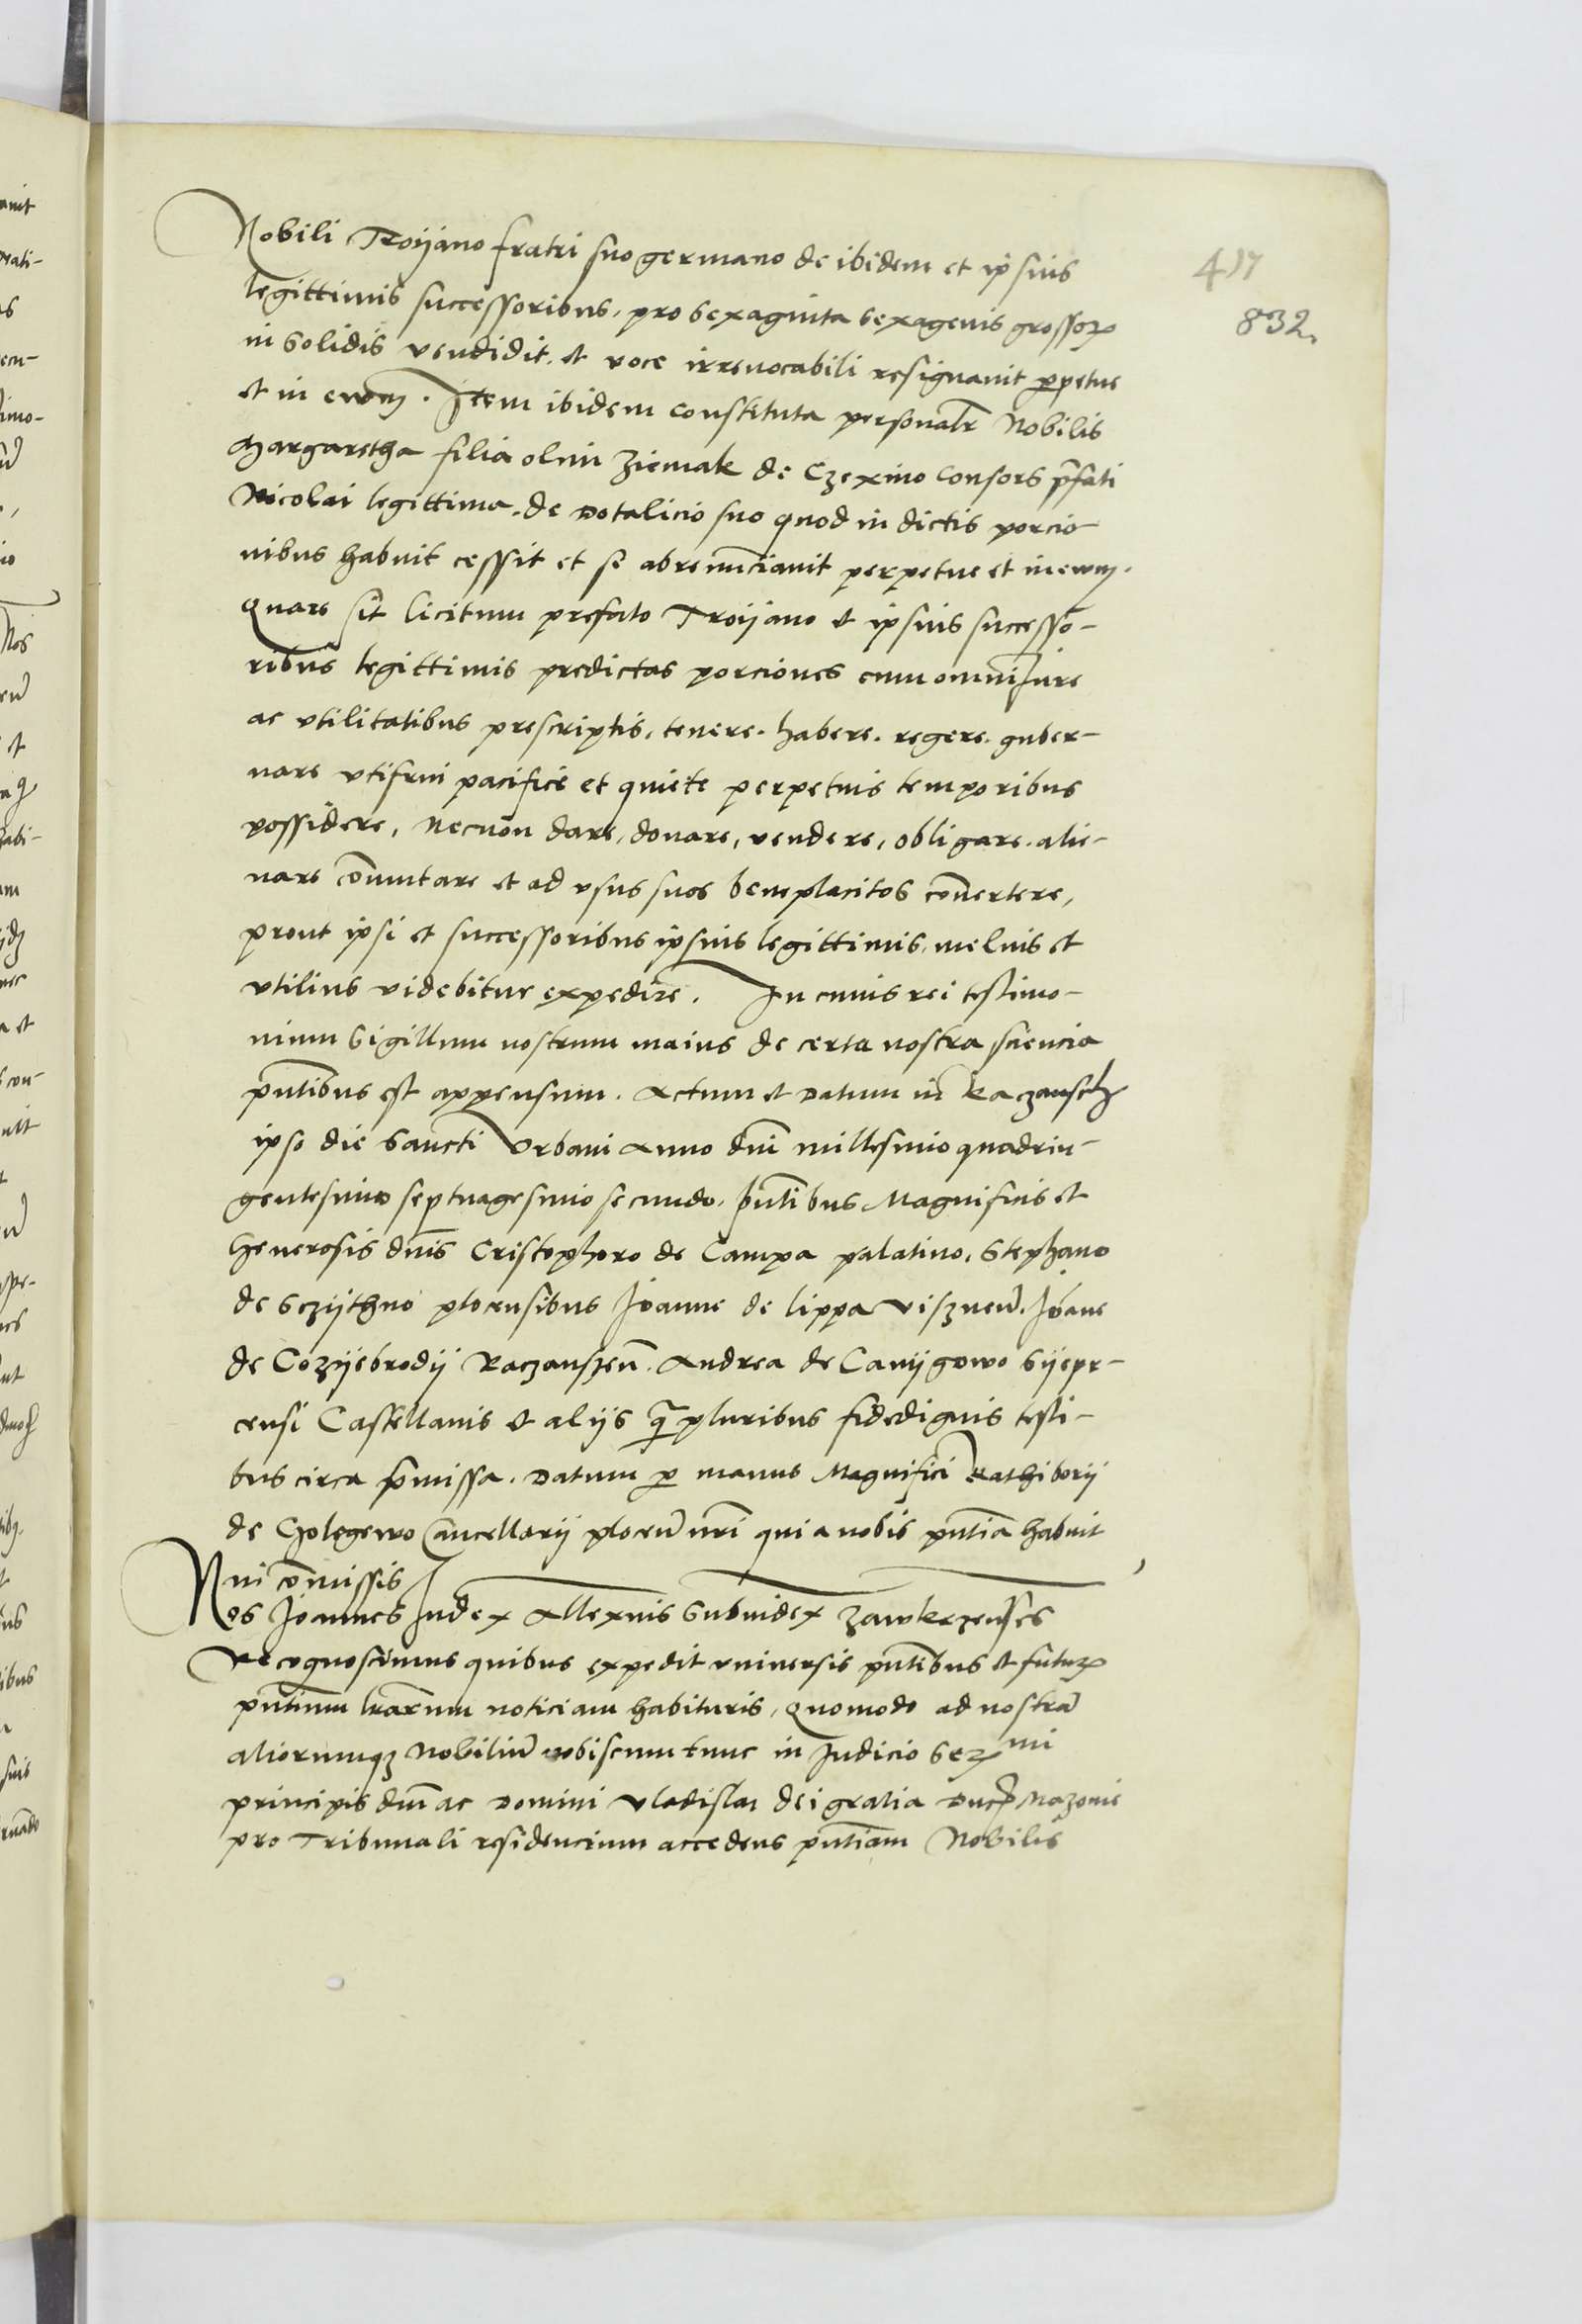 Nobili Troijano fratri suo germano de ibidem et ipsius
417
legittimis successoribus, pro sexaginta sexagenis grossoꝝ
832
in solidis vendidit, et voce irrevocabili resignauit ꝑpetue
et in ewm̄. Item ibidem constituta personalr̄ Nobilis
Margaretha filia olim Ziemak de Czexino Consors p̄fati
Nicolai legittima, de dotalicio suo quod in dictis porcio-
nibus habuit cessit et se abrenunciauit perpetue et in ewm̄.
Quare sit licitum prefato Troijano et ipsius successo-
ribus legittimis predictas porciones cum omni Iure
ac vtilitatibus prescriptis, tenere. habere. regere. guber-
nare vtifrui pacifice et quiete perpetuis temporibus
possidere, Necnon dare, donare, vendere, obligare. alie-
nare cōmutare et ad vsus suos beneplacitos cōuertere,
prout ipsi et successoribus ipsius legittimis melius et
vtilius videbitur expedire. In cuius rei testimo-
nium Sigillum nostrum maius de certa nostra sciencia
pn̄tibus est appensum. Actum et datum in Raczansch
ipso die Sancti Vrbani Anno dn̄i millesimo quadrin-
gentesimo septuagesimo secundo. pn̄tibus Magnificis et
Generosis dn̄is Cristophoro de Campa palatino, Stephano
de Sczijthno plocensibus Ioanne de lippa viszneñ. Ioāne
de Cozijebrodij Raczanszeñ. Andrea de Canijgowo Sijepr-
censi Castellanis et alijs q̄ pluribus fidedignis testi-
bus circa p̄missa. Datum ꝑ manus Magnifici Rathiborij
de Golegewo Cancellarij ploceñ nr̄i qui a nobis pn̄tia habuit
in cōmissis
Nos Ioannes Iudex Allexius Subiudex Zawkrzenses
Recognoscimus quibus expedit vniuersis pn̄tibus et futuꝝ
pn̄tium lr̄arum noticiam habituris, Quomodo ad nostrā
aliorumqꝫ Nobiliū nobiscum tunc in Iudicio Serᵐⁱ
principis dn̄i ac Domini Vladislai dei gratia Ducꝭ Mazouie
pro Tribunali residencium accedens pn̄tiam Nobilis